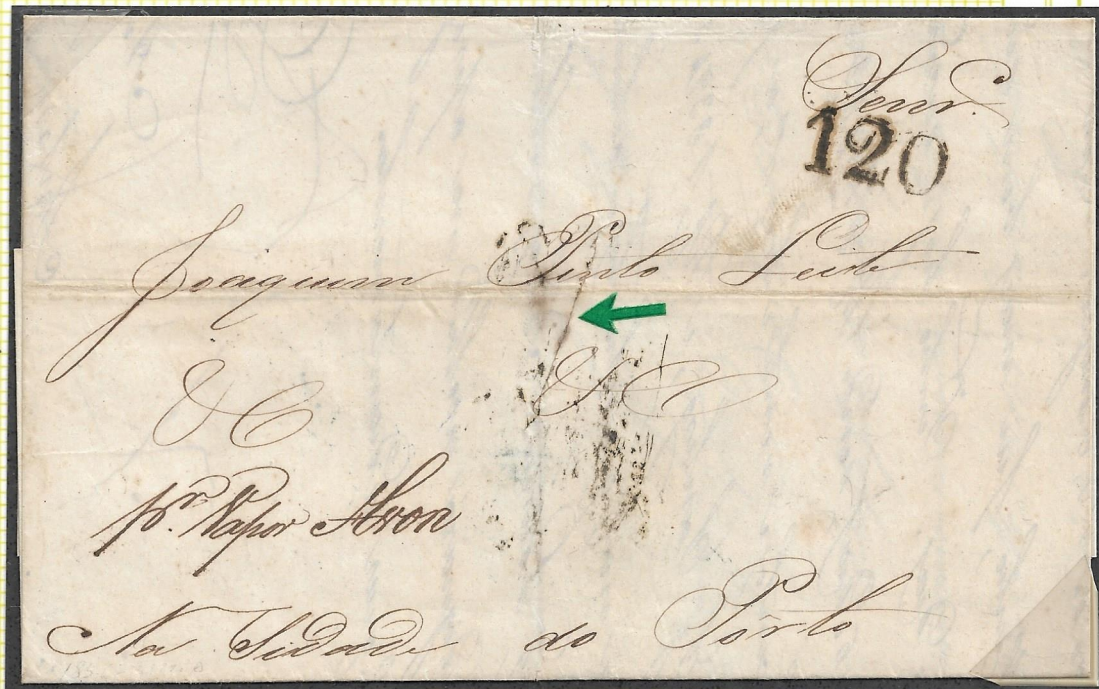 Senr.
120
Joaquim Pinto Leite
& C & C
pr. Vapor Avon
Na Sidade do Pôrto